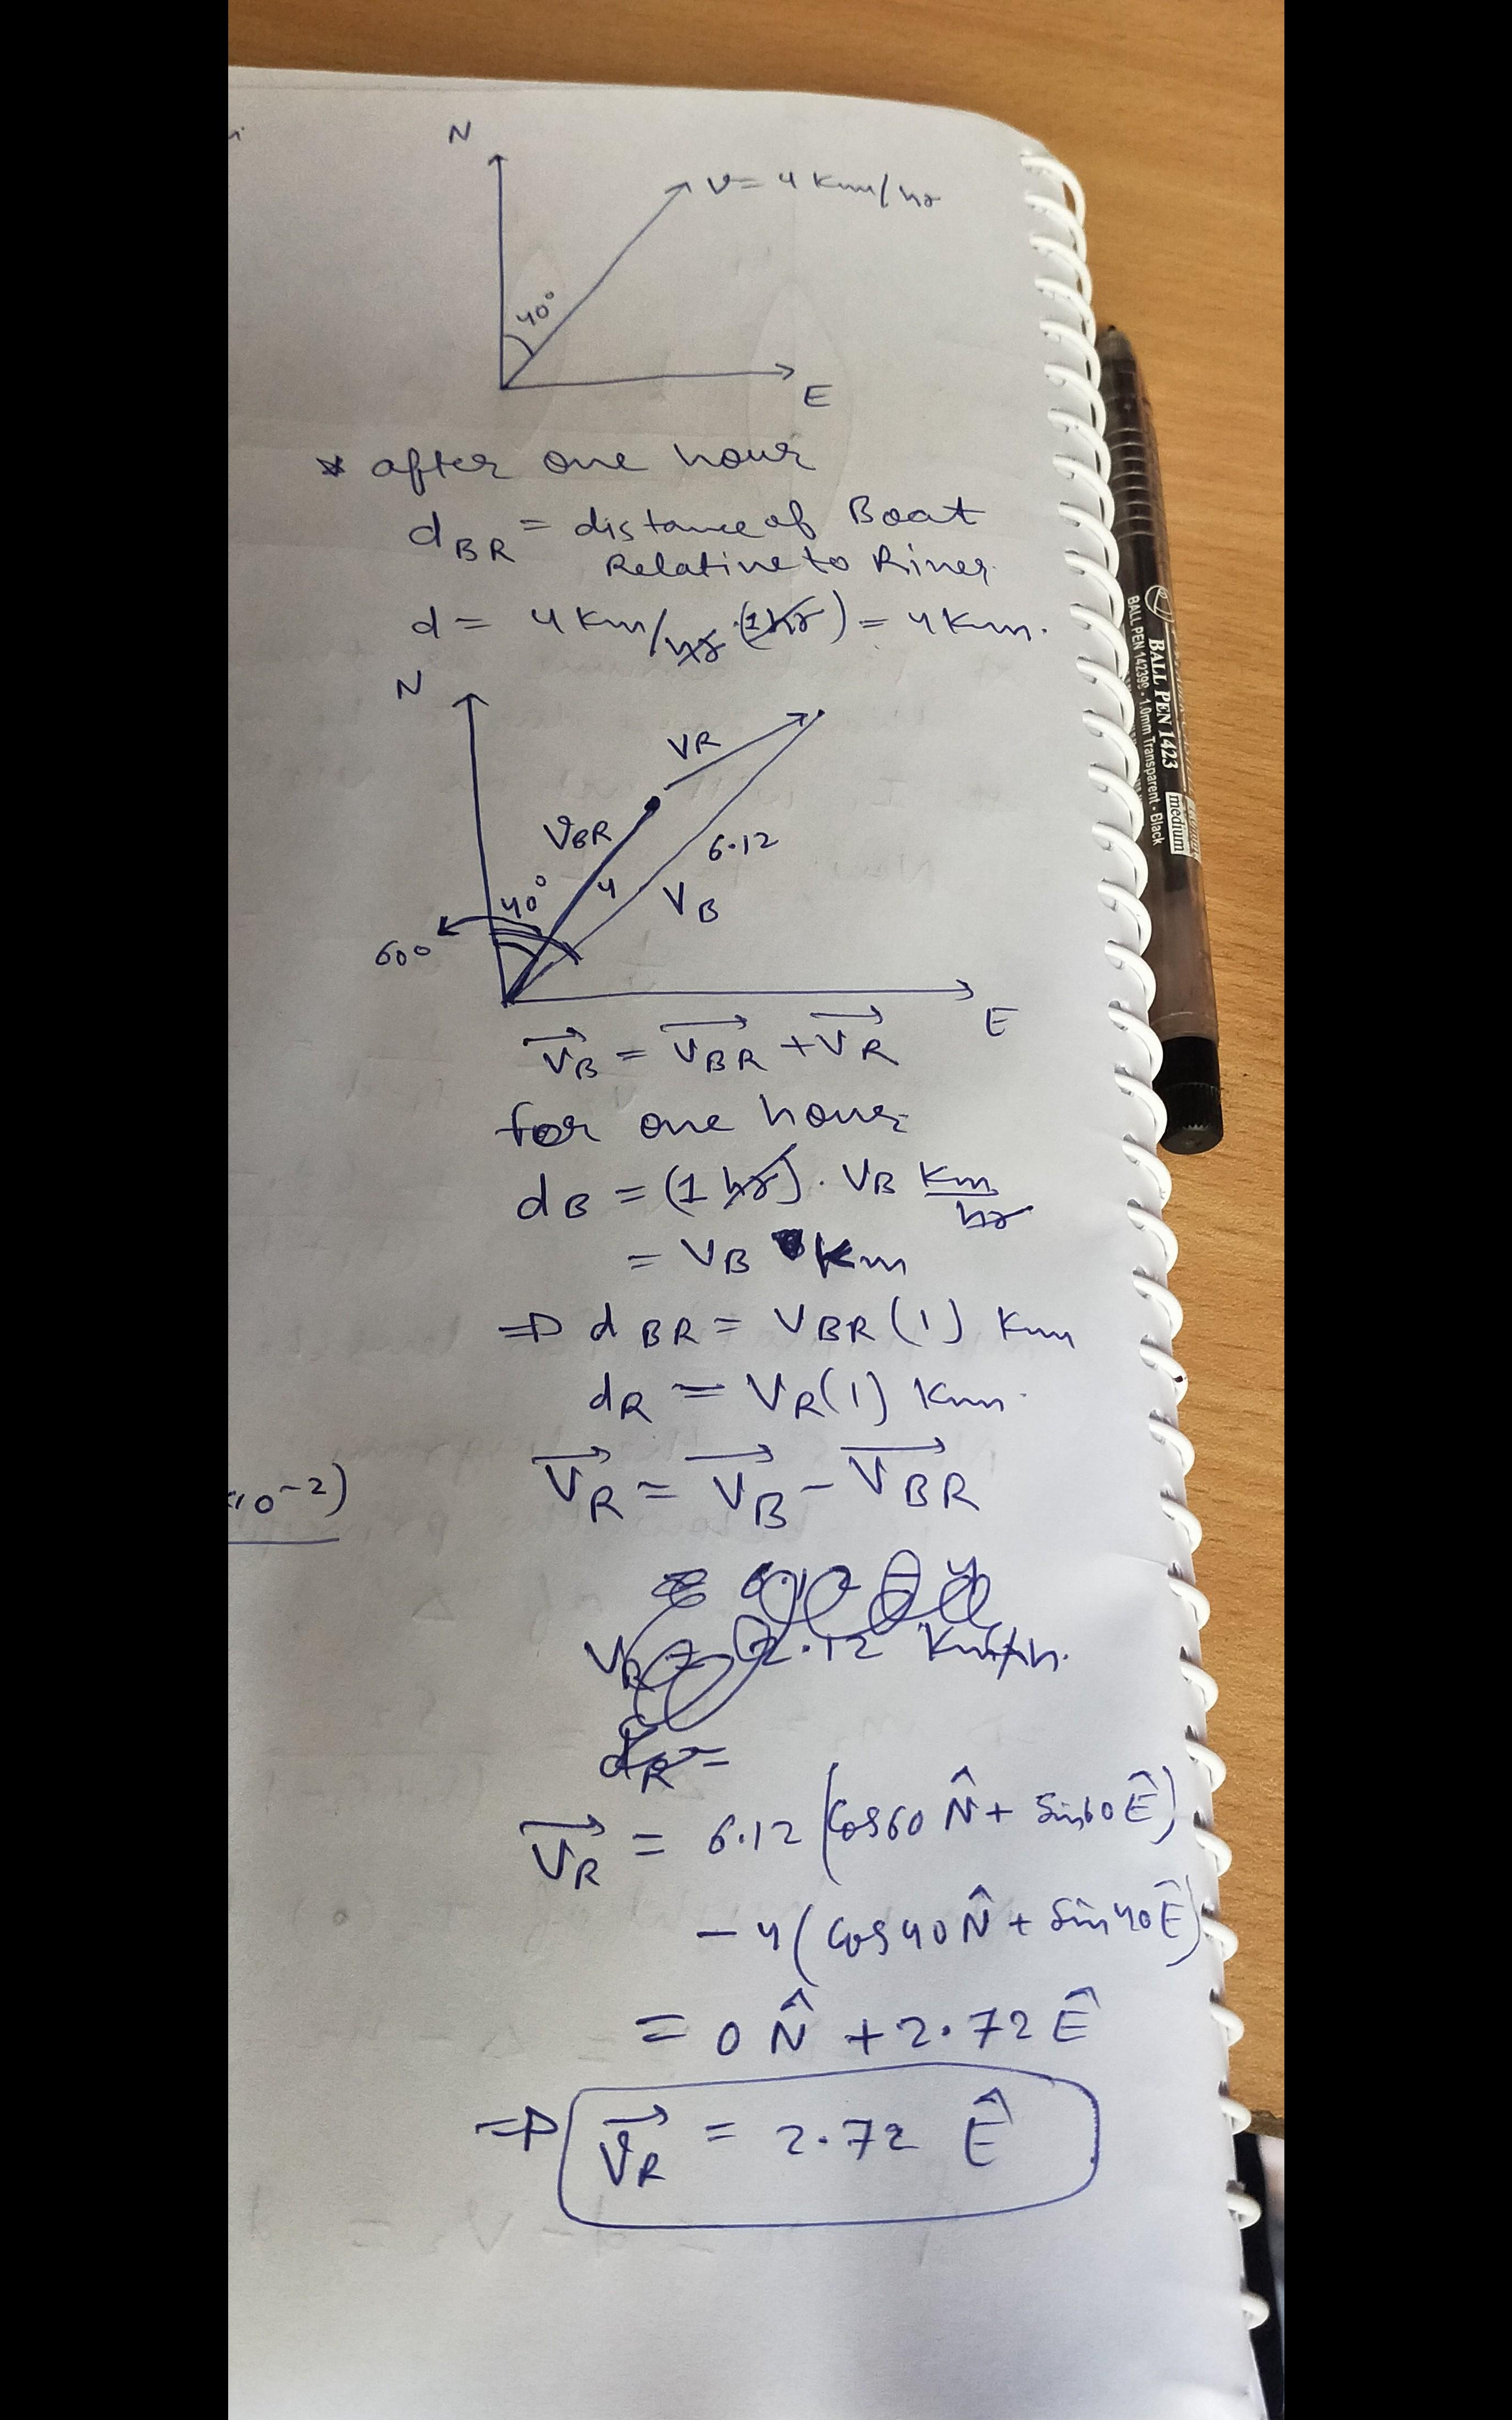 N
V = 4 Km/hr
40°
E
* after one hour
dBR = distance of Boat
Relative to River.
d = 4 Km/hr . (1hr) = 4 Km.
N
VR
VBR
6.12
40°
4
VB
60°
E
VB = VBR + VR
for one hour
dB = (1 hr) . VB Km/hr
= VB Km
⇒ dBR = VBR (1) Km
dR = VR (1) Km.
VR = VB - VBR
<10⁻²)
2.12 Km/h.
dR =
VR = 6.12 (Cos60 N̂ + Sin60 Ê)
- 4 (Cos40 N̂ + Sin40 Ê)
= 0 N̂ + 2.72 Ê
⇒ VR = 2.72 Ê
BALL PEN 1423 medium
BALL PEN 142399 - 1.0mm Transparent - Black